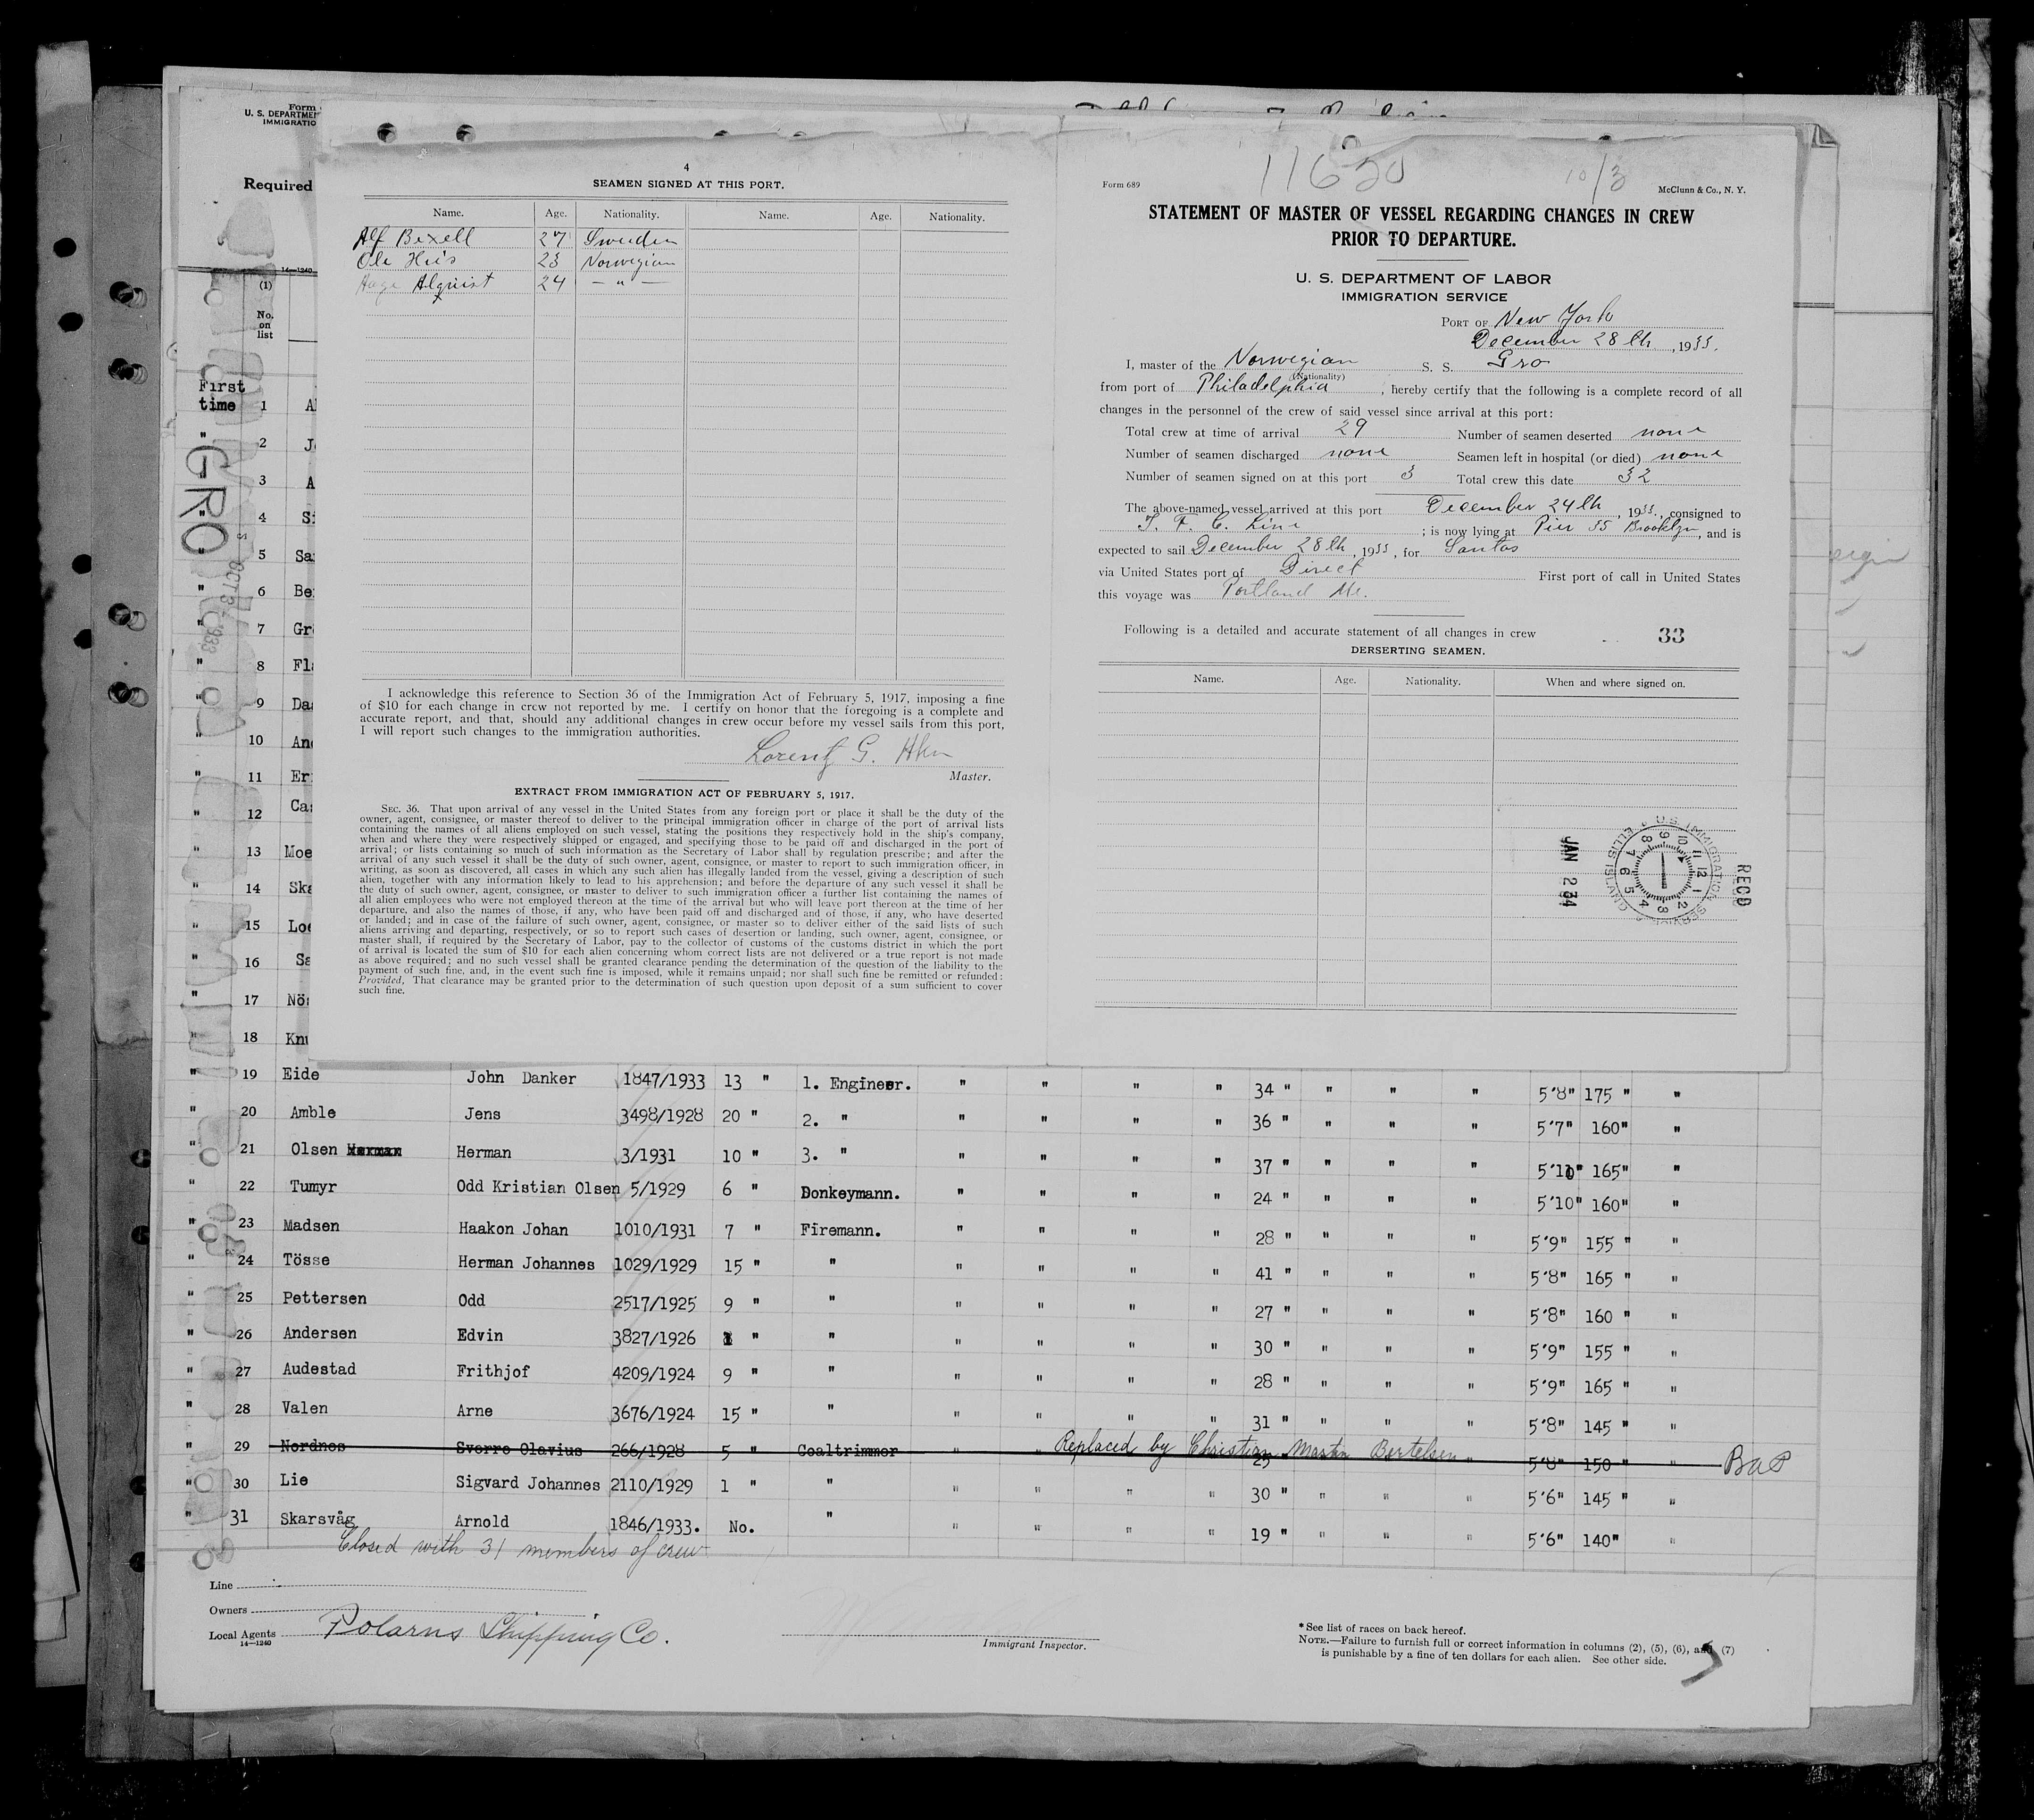 Form
U. S. DEPARTMEN
IMMIGRATIO
Required
14—1240
(1)
No. on list
First time
GRO
OCT 3 1933
4
SEAMEN SIGNED AT THIS PORT.
Name. Age. Nationality. Name. Age. Nationality.
Alf Bexell 27 Sweden
Ole Hies 23 Norwegian
Hage Alqvist 24 — " —
I acknowledge this reference to Section 36 of the Immigration Act of February 5, 1917, imposing a fine
of $10 for each change in crew not reported by me. I certify on honor that the foregoing is a complete and
accurate report, and that, should any additional changes in crew occur before my vessel sails from this port,
I will report such changes to the immigration authorities.
Lorentz G.
Master.
EXTRACT FROM IMMIGRATION ACT OF FEBRUARY 5, 1917.
SEC. 36. That upon arrival of any vessel in the United States from any foreign port or place it shall be the duty of the
owner, agent, consignee, or master thereof to deliver to the principal immigration officer in charge of the port of arrival lists
containing the names of all aliens employed on such vessel, stating the positions they respectively hold in the ship's company,
when and where they were respectively shipped or engaged, and specifying those to be paid off and discharged in the port of
arrival; or lists containing so much of such information as the Secretary of Labor shall by regulation prescribe; and after the
arrival of any such vessel it shall be the duty of such owner, agent, consignee, or master to report to such immigration officer, in
writing, as soon as discovered, all cases in which any such alien has illegally landed from the vessel, giving a description of such
alien, together with any information likely to lead to his apprehension; and before the departure of any such vessel it shall be
the duty of such owner, agent, consignee, or master to deliver to such immigration officer a further list containing the names of
all alien employees who were not employed thereon at the time of the arrival but who will leave port thereon at the time of her
departure, and also the names of those, if any, who have been paid off and discharged and of those, if any, who have deserted
or landed; and in case of the failure of such owner, agent, consignee, or master so to deliver either of the said lists of such
aliens arriving and departing, respectively, or so to report such cases of desertion or landing, such owner, agent, consignee, or
master shall, if required by the Secretary of Labor, pay to the collector of customs of the customs district in which the port
of arrival is located the sum of $10 for each alien concerning whom correct lists are not delivered or a true report is not made
as above required; and no such vessel shall be granted clearance pending the determination of the question of the liability to the
payment of such fine, and, in the event such fine is imposed, while it remains unpaid; nor shall such fine be remitted or refunded:
Provided, That clearance may be granted prior to the determination of such question upon deposit of a sum sufficient to cover
such fine.
11620 10/3
Form 689 McClunn & Co., N. Y.
STATEMENT OF MASTER OF VESSEL REGARDING CHANGES IN CREW
PRIOR TO DEPARTURE.
U. S. DEPARTMENT OF LABOR
IMMIGRATION SERVICE
PORT OF New York
December 28th, 1933.
I, master of the Norwegian S. S. Gro
(Nationality)
from port of Philadelphia, hereby certify that the following is a complete record of all
changes in the personnel of the crew of said vessel since arrival at this port:
Total crew at time of arrival 29 Number of seamen deserted none
Number of seamen discharged none Seamen left in hospital (or died) none
Number of seamen signed on at this port 3 Total crew this date 32
The above-named vessel arrived at this port December 24th, 1933., consigned to
I. F. C. Line; is now lying at Pier 35 Brooklyn, and is
expected to sail December 28th, 1933, for Santos
via United States port of Direct First port of call in United States
this voyage was Portland Me.
Following is a detailed and accurate statement of all changes in crew 33
DERSERTING SEAMEN.
Name. Age. Nationality. When and where signed on.
RECD
U.S. IMMIGRATION SERVICE ELLIS ISLAND
JAN 2 34
" 1 Al
" 2 Jo
" 3 A
" 4 Si
" 5 Sa
" 6 Be
" 7 Gr
" 8 Fl
" 9 Da
" 10 An
" 11 Er
" 12 Ca
" 13 Moe
" 14 Ska
" 15 Loe
" 16 Sa
" 17 Nö
" 18 Knu
" 19 Eide John Danker 1847/1933 13 " 1. Engineer. " " " " 34 " " " " 5'8" 175 " "
" 20 Amble Jens 3498/1928 20 " 2. " " " " " 36 " " " " 5'7" 160" "
" 21 Olsen Herman Herman 3/1931 10 " 3. " " " " " 37 " " " " 5'10" 165" "
" 22 Tumyr Odd Kristian Olsen 5/1929 6 " Donkeymann. " " " " 24 " " " " 5'10" 160" "
" 23 Madsen Haakon Johan 1010/1931 7 " Firemann. " " " " 28 " " " " 5'9" 155 " "
" 24 Tösse Herman Johannes 1029/1929 15 " " " " " " 41 " " " " 5'8" 165 " "
" 25 Pettersen Odd 2517/1925 9 " " " " " " 27 " " " " 5'8" 160 " "
" 26 Andersen Edvin 3827/1926 1 " " " " " " 30 " " " " 5'9" 155 " "
" 27 Audestad Frithjof 4209/1924 9 " " " " " " 28 " " " " 5'9" 165 " "
" 28 Valen Arne 3676/1924 15 " " " " " " 31 " " " " 5'8" 145 " "
" 29 Nordnes Sverre Olavius 266/1928 5 " Coaltrimmer " " Replaced by Christian Martin Bertelsen 25 " 5'8" 150 " "
" 30 Lie Sigvard Johannes 2110/1929 1 " " " " " " 30 " " " " 5'6" 145 " "
" 31 Skarsvåg Arnold 1846/1933. No. " " " " " 19 " " " " 5'6" 140" "
Closed with 31 members of crew
Line
Owners
Local Agents Polarus Shipping Co.
14—1240
Immigrant Inspector.
*See list of races on back hereof.
NOTE.—Failure to furnish full or correct information in columns (2), (5), (6), and (7)
is punishable by a fine of ten dollars for each alien. See other side.